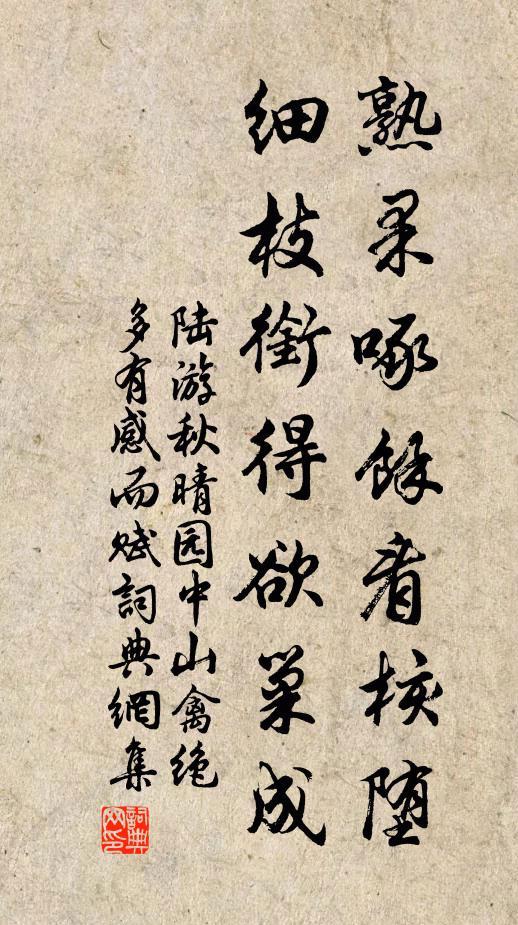 熟果啄餘看核堕
細枝銜得欲巢成
陆游秋晴园中山禽绝
多有感而赋詞典網集
詞典网印